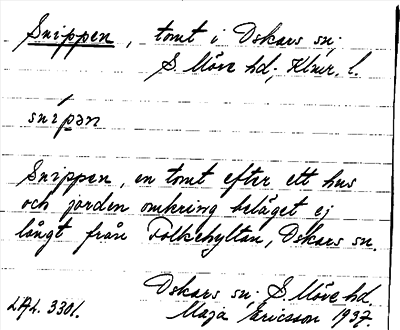 Snippen, tomt i Oskars sn;
S Möre hd; Klmr. l.
snípən
Snippen, en tomt efter ett hus
och jorden omkring beläget ej
långt från Folkehyltan, Oskars sn.
Oskars sn. S. Möre hd.
LAL. 3301. Maja Ericsson 1937.